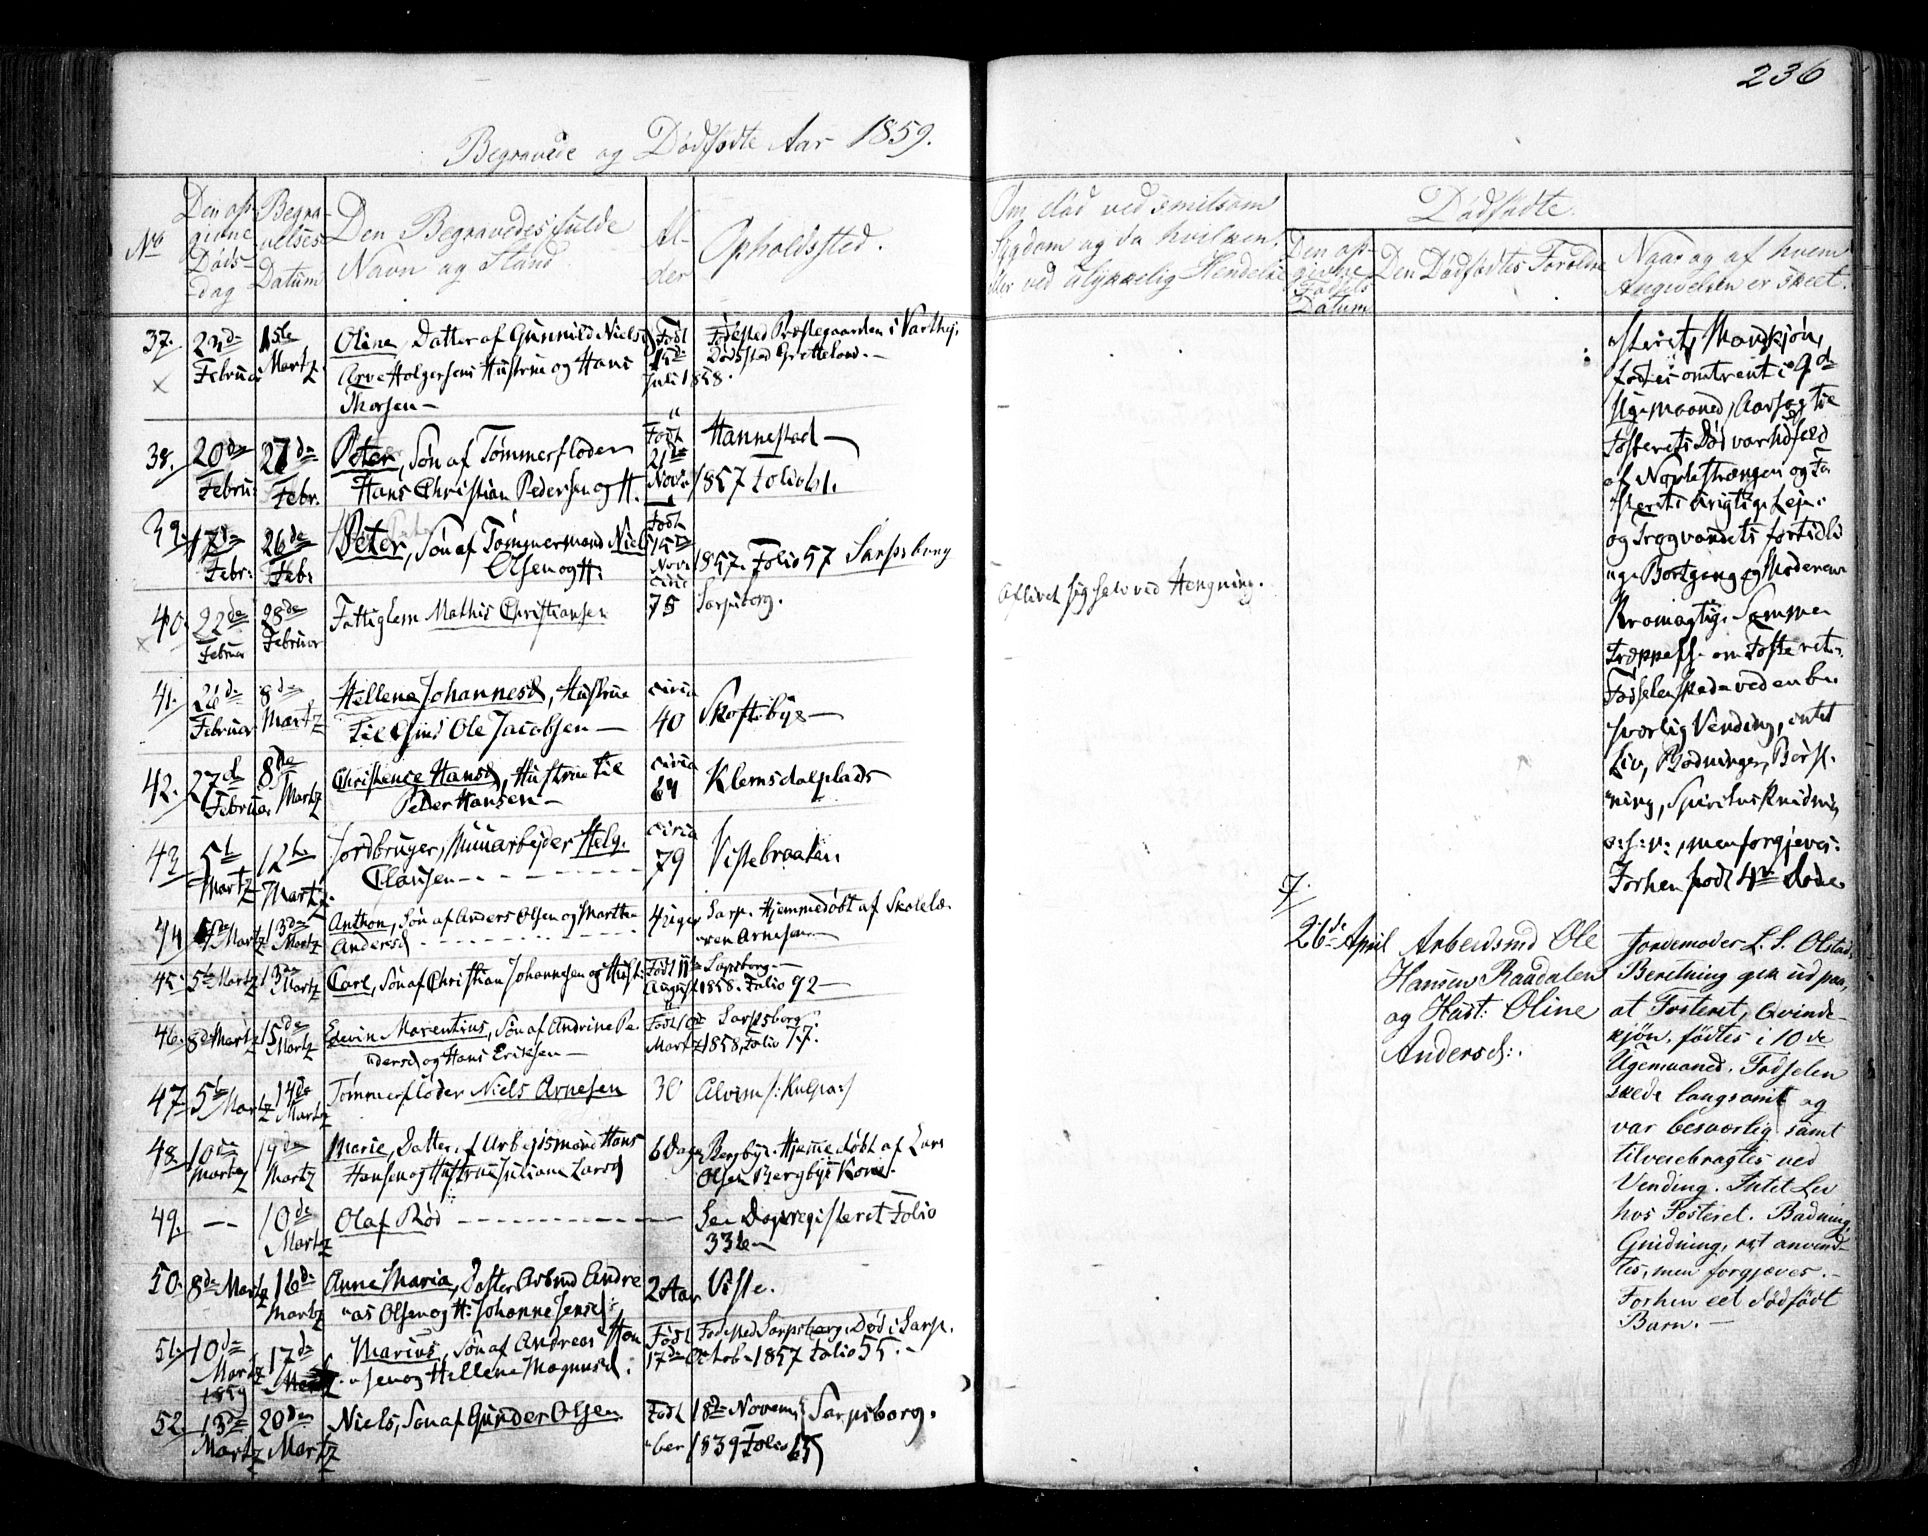 236
Begravede og Dødfødte Aar 1859.
No
Den op-
givne
Døds-
dag
Begra-
velses
Datum
Den Begravedes fulde
Navn og Stand
Al-
der
Opholdssted.
Om død ved smitsom
Sygdom og da hvilken,
eller ved ulykkelig Hendelse
Dødfødte.
Den op-
givne
Fødsels
Datum
Den Dødfødtes Foreldre
Naar og af hvem
Angivelsen er skeet.
37. 23de Februar 1ste Martz Oline, Datter af Gunnild Nielsd Født Fødested Præstegaarden i Varteg,
Arve Holgersens Hustrue og Hans 15de Dødssted Grettelond.—
Thorsen— Juli 1858.
38. 20de Februar 27de Febr. Peter, Søn af Tømmerfløder Født Hannestad—
Hans Christian Pedersen og H. 21de Novbr 1857 Folio 61.
39. 17de Febr: 26de Febr Peter, Søn af Tømmermand Niels Født 15de
Olsen og H: Novb 1857. Folio 57 Sarpsborg
40. 22de Februar 28de Februar Fattiglem Mathis Christiansen circa 75 Sarpsborg.
Aflivet sig selv ved Hengning.
41. 26de Februar 8de Martz Hellene Johannesd, Hustrue circa
til Hmd Ole Jacobsen— 40 Skoftebye—
42. 27d Februar 8de Martz Christence Hansd, Hustrue til circa 64 Klemsdalplads
Peder Hansen—
43. 5te Martz 12te Martz Jordbruger, Muurarbejder Helg. circa 79 Vistebraaten.
Clausen
44 5de Martz 13de Martz Anthon, Søn af Anders Olsen og Marthe 4 uger Sarp. Hjemmedøbt af Skolelæ-
Andersd reren Arnesen
45. 5te Martz 13de Martz Carl, Søn af Christian Johannesen og Hust: Født 11te Sarpsborg—
August 1858. Folio 92—
46. 8de Martz 15de Martz Edevin Marentius, Søn af Andrine Pe- Født 10de Sarpsborg.
dersd og Hans Eriksen— Martz 1858, Folio 77.
47 5te Martz 14de Martz Tømmerfløder Niels Arnesen 30 Alvim /:Kulpa:/
48. 10de Martz 19de Martz Marie, Datter af Arbejdsmand Hans 6 Dage Bergbye. Hjemmedøbt af Lars
Hansen og Hustrue Juliane Larsd Olsen Bergbye Kone.
49. — 10de Martz Olaf Rød See Dagregisteret Folio
336—
50. 8de Martz 16de Martz Anne Maria, Datter Arbmd Andre- 2 Aar Viste.
as Olsen og H: Johanne Jensd:
51. 10de Martz 1859 17de Martz Marius, Søn af Andreas Han- Født Fødested Sarpsborg. Død i Sarp.
sen og Hellene Magnusd: 17de Octob. 1857 Folio 55.—
52. 13de Martz 20de Martz Niels, Søn af Gunder Olsen Født 18de Novem- Sarpsborg.
ber 1839 Folio 65)
Fosteret, Mandkjøn,
fødtes omtrent i 9de
Ugemaaned, Aarsag til
Fosterets Død var Udfald
af Navlestrængen og Fo-
sterets urigtige Leje.
og Fragvandets fortidli-
ge Bortgang og Moderens
Kramagtige Sammen-
Fosselen skede ved en be-
sværlig Vending, intet
Liv, Badninger, Børst-
ning, Spiritus Gnidning
o:s:v:, men forgjeves.
Forhen født 4re døde.
7.
26de April
Arbeidsmd Ole
Hansen Raadalen
og Hust: Oline
Andersd:.
Jordemoder L. S. Olstads
Beretning gik ud paa,
at Fosteret, Qvinde-
kjøn, fødtes i 10de
Ugemaaned. Fødselen
skede langsomt og
var besværlig samt
tilveiebragtes ved
Vending. Intet Liv
hos Fosteret. Badning,
Gnidning, ect anvend-
tes, men forgjæves.—
Forhen eet dødfødt
Barn.—